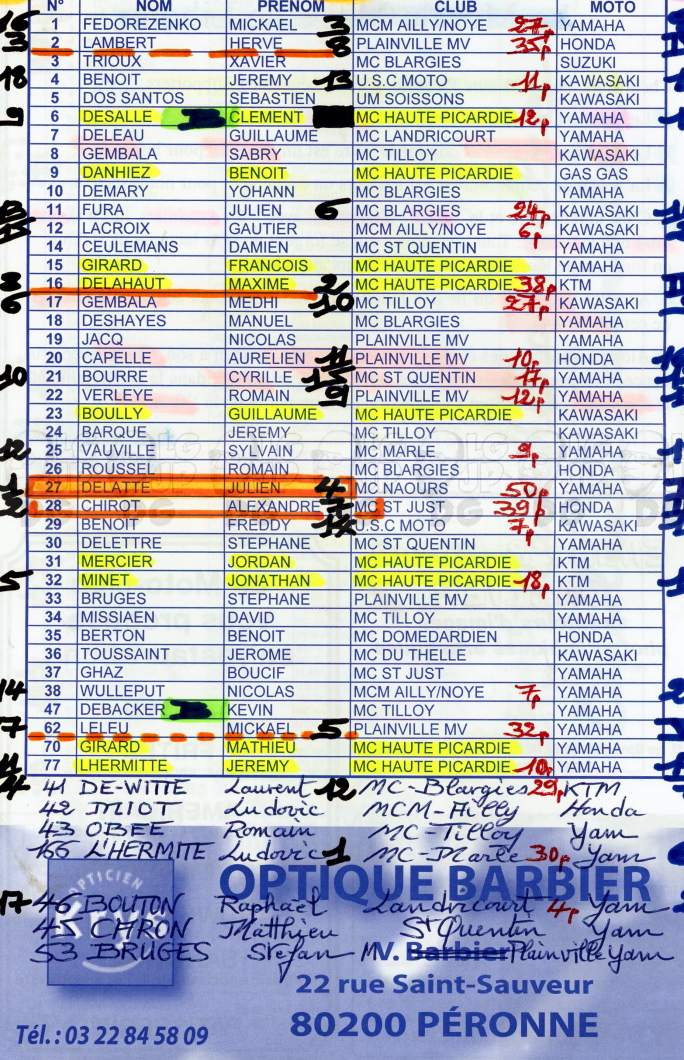 N° NOM PRENOM CLUB MOTO
16 1 FEDOREZENKO MICKAEL 3 MCM AILLY/NOYE 27p YAMAHA
3 2 LAMBERT HERVE 8 PLAINVILLE MV 35p HONDA
3 TRIOUX XAVIER MC BLARGIES SUZUKI
18 4 BENOIT JEREMY 13 U.S.C MOTO 11p KAWASAKI
5 DOS SANTOS SEBASTIEN UM SOISSONS KAWASAKI
9 6 DESALLE CLEMENT MC HAUTE PICARDIE 12p YAMAHA
7 DELEAU GUILLAUME MC LANDRICOURT YAMAHA
8 GEMBALA SABRY MC TILLOY KAWASAKI
9 DANHIEZ BENOIT MC HAUTE PICARDIE GAS GAS
10 DEMARY YOHANN MC BLARGIES YAMAHA
11 FURA JULIEN 6 MC BLARGIES 24p KAWASAKI
12 LACROIX GAUTIER MCM AILLY/NOYE 6p KAWASAKI
14 CEULEMANS DAMIEN MC ST QUENTIN YAMAHA
15 GIRARD FRANCOIS MC HAUTE PICARDIE YAMAHA
16 DELAHAUT MAXIME 2 MC HAUTE PICARDIE 38p KTM
6 17 GEMBALA MEDHI 10 MC TILLOY 27p KAWASAKI
18 DESHAYES MANUEL MC BLARGIES YAMAHA
19 JACQ NICOLAS PLAINVILLE MV YAMAHA
20 CAPELLE AURELIEN 11 PLAINVILLE MV 10p HONDA
10 21 BOURRE CYRILLE MC ST QUENTIN 17p YAMAHA
22 VERLEYE ROMAIN 9 PLAINVILLE MV 12p YAMAHA
23 BOULLY GUILLAUME MC HAUTE PICARDIE KAWASAKI
24 BARQUE JEREMY MC TILLOY KAWASAKI
12 25 VAUVILLE SYLVAIN MC MARLE 9p YAMAHA
26 ROUSSEL ROMAIN MC BLARGIES HONDA
1 27 DELATTE JULIEN 4 MC NAOURS 50p YAMAHA
2 28 CHIROT ALEXANDRE 7 MC ST JUST 39p HONDA
29 BENOIT FREDDY 14 U.S.C MOTO 7p KAWASAKI
30 DELETTRE STEPHANE MC ST QUENTIN YAMAHA
31 MERCIER JORDAN MC HAUTE PICARDIE KTM
5 32 MINET JONATHAN MC HAUTE PICARDIE 18p KTM
33 BRUGES STEPHANE PLAINVILLE MV YAMAHA
34 MISSIAEN DAVID MC TILLOY YAMAHA
35 BERTON BENOIT MC DOMEDARDIEN HONDA
36 TOUSSAINT JEROME MC DU THELLE KAWASAKI
37 GHAZ BOUCIF MC ST JUST YAMAHA
14 38 WULLEPUT NICOLAS MCM AILLY/NOYE 7p YAMAHA
47 DEBACKER KEVIN MC TILLOY YAMAHA
7 62 LELEU MICKAEL 5 PLAINVILLE MV 32p YAMAHA
70 GIRARD MATHIEU MC HAUTE PICARDIE YAMAHA
11 77 LHERMITTE JEREMY MC HAUTE PICARDIE 10p YAMAHA
4 41 DE-WITTE Laurent 12 MC-Blargies 29p KTM
42 MIOT Ludovic MCM-Ailly Honda
43 OBEE Romain MC-Tilloy Yam
166 L'HERMITE Ludovic 1 MC-Marle 30p Yam
OPTICIEN
Krys
OPTIQUE BARBIER
17 46 BOUTON Raphaël Landricourt 4p Yam
45 CHRON Matthieu St Quentin Yam
53 BRUGES Stefan MV. Barbier Plainville Yam
22 rue Saint-Sauveur
Tél. : 03 22 84 58 09
80200 PÉRONNE